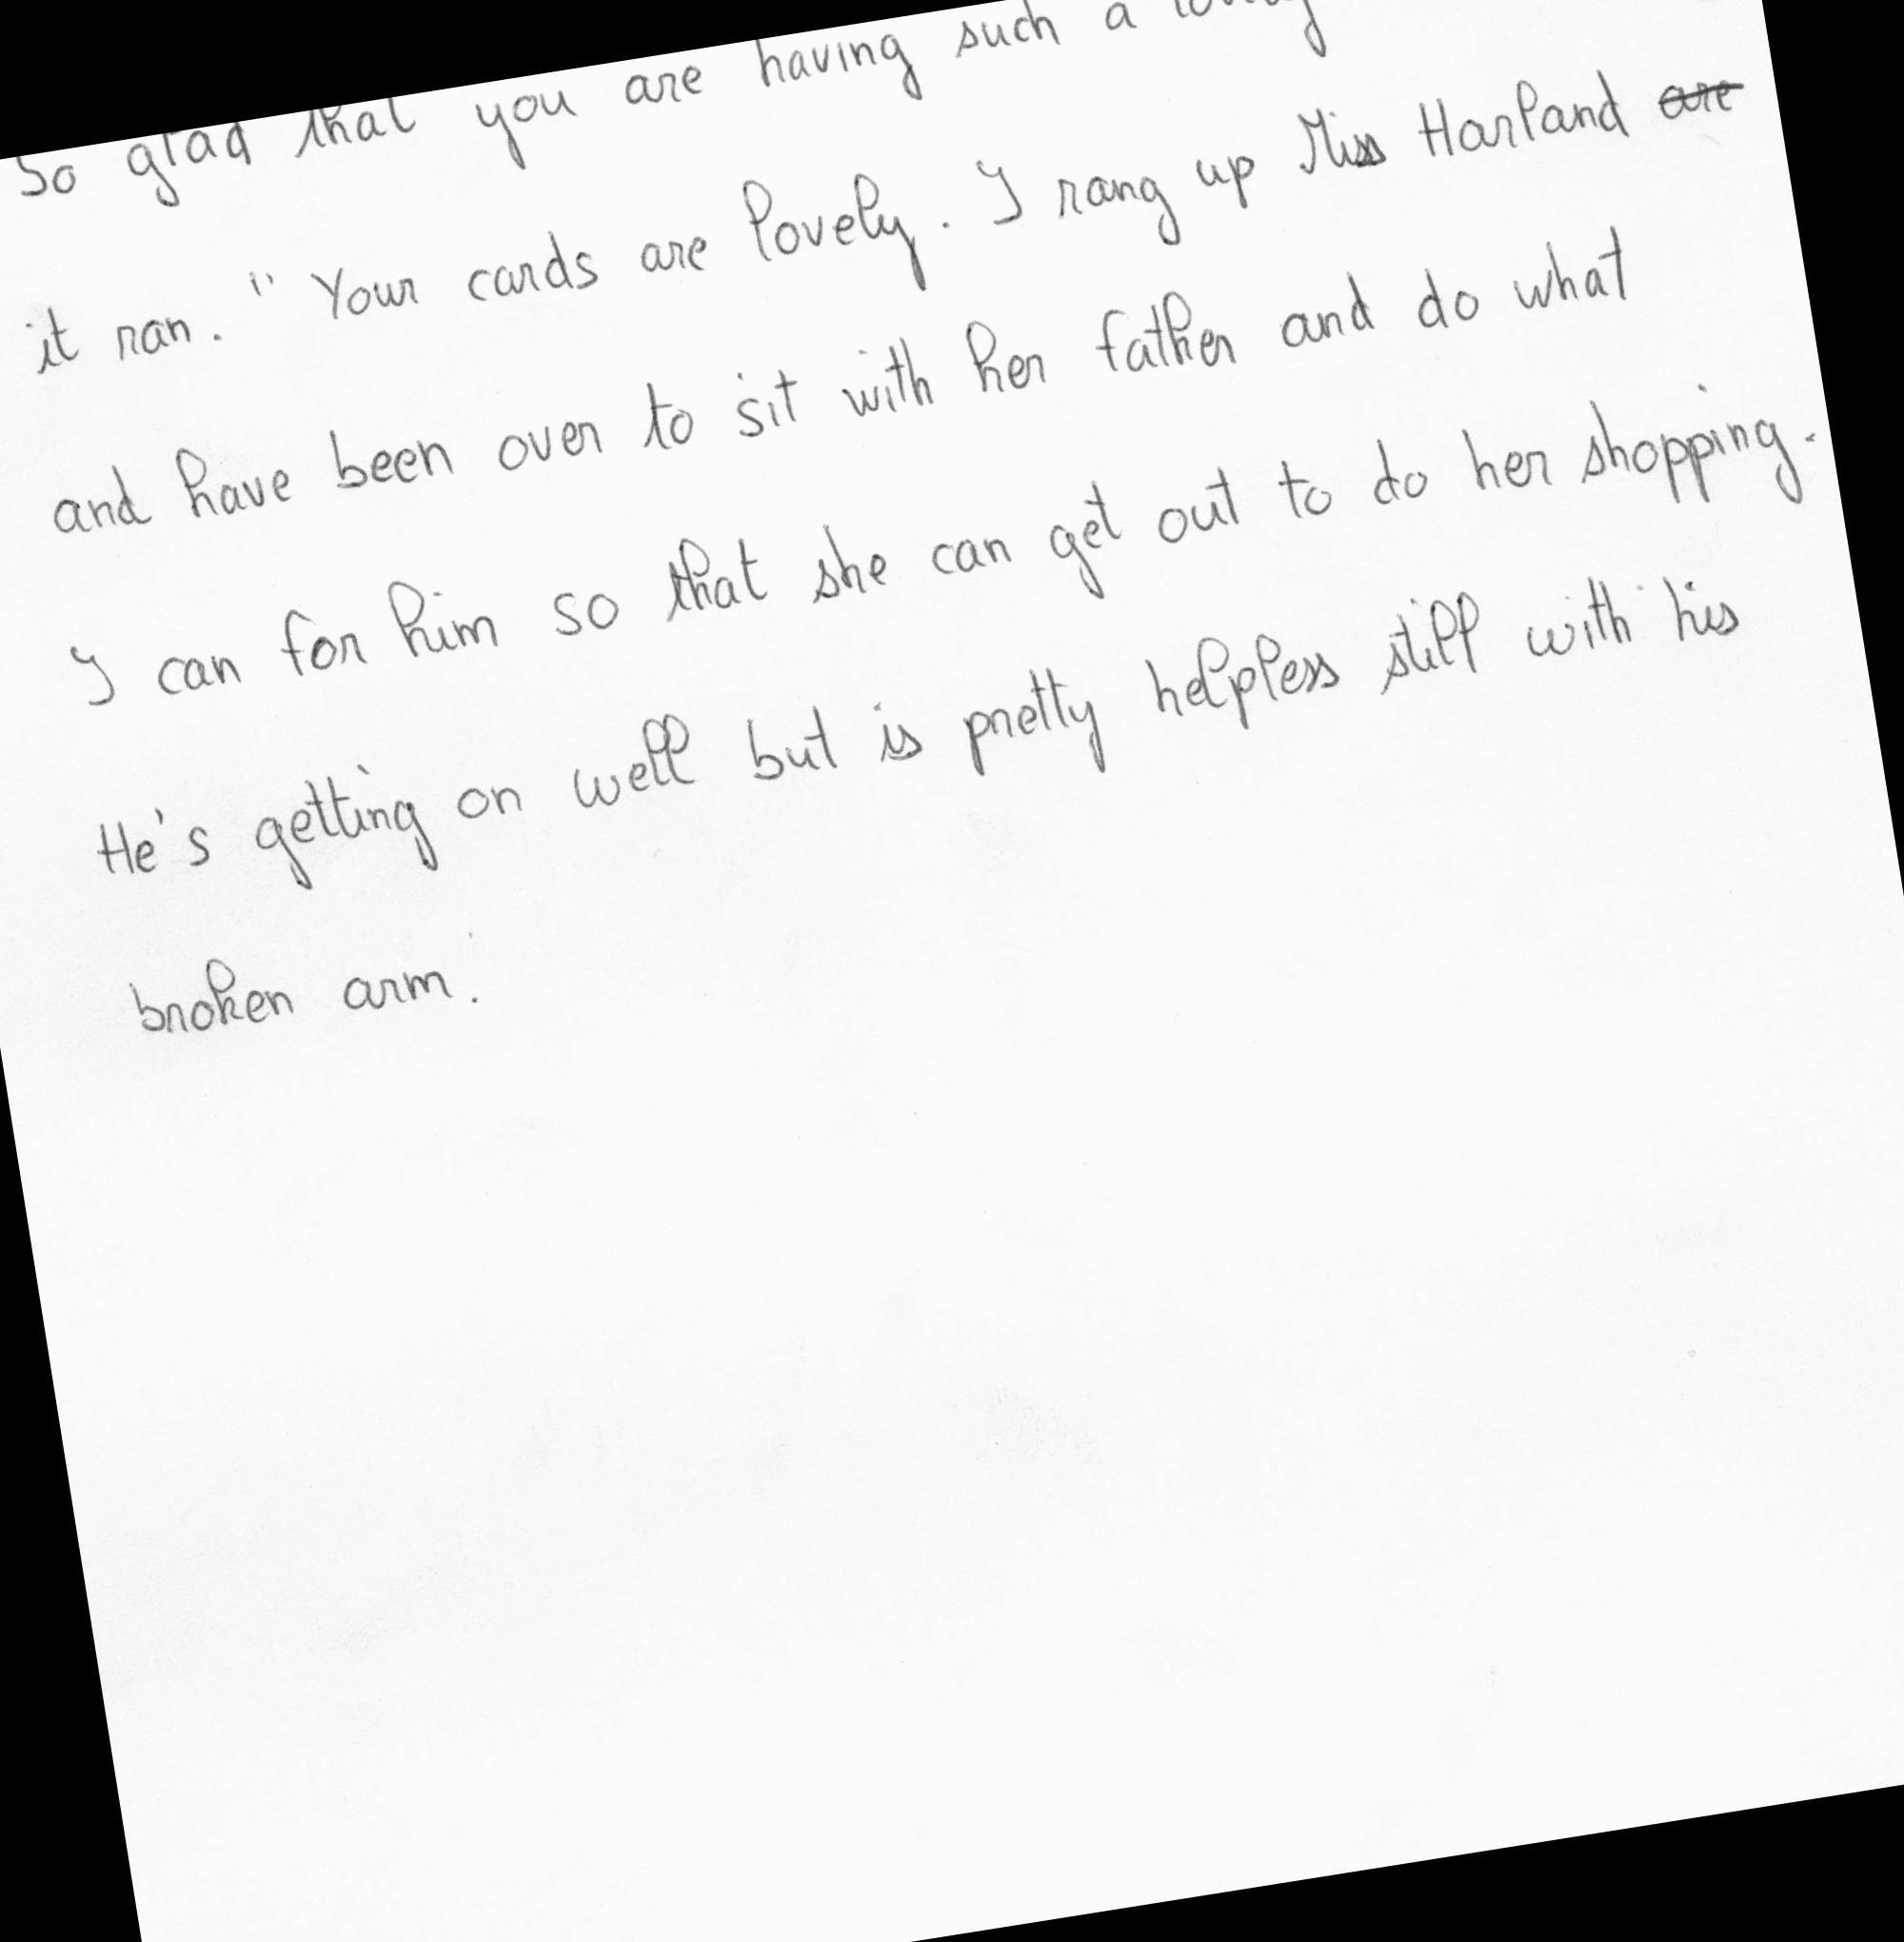 So glad that you are having such a
it ran. " Your cards are lovely. I rang up Miss Harland are
and have been over to sit with her father and do what
I can for him so that she can get out to do her shopping.
He's getting on well but is pretty helpless still with his
broken arm.